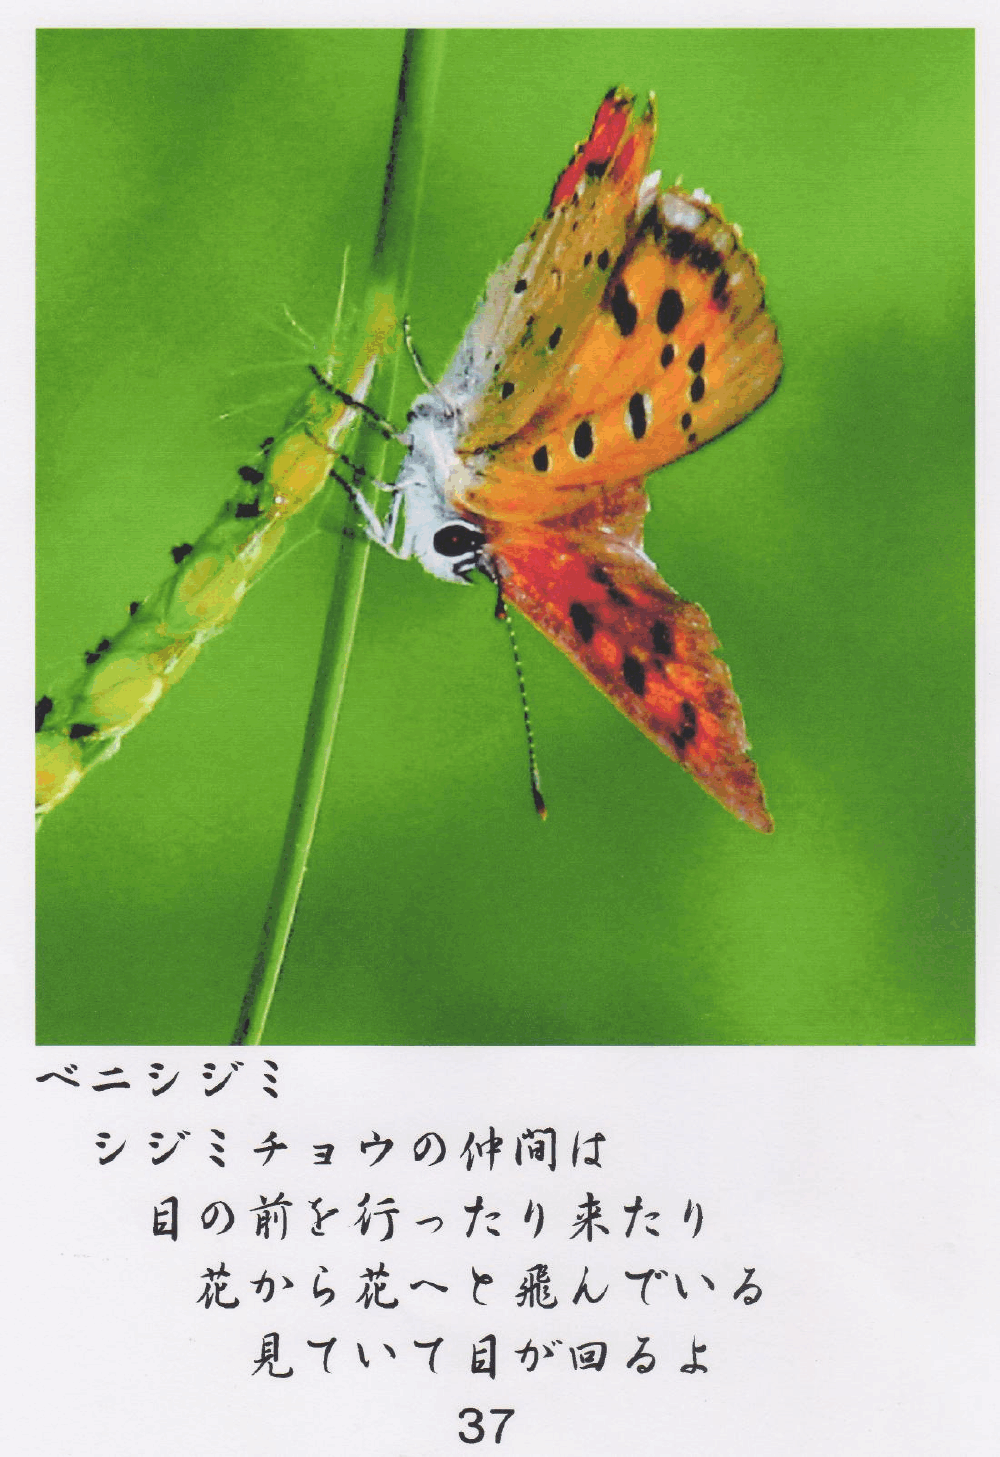 ベニシジミ
シジミチョウの仲間は
目の前を行ったり来たり
花から花へと飛んでいる
見ていて目が回るよ
37